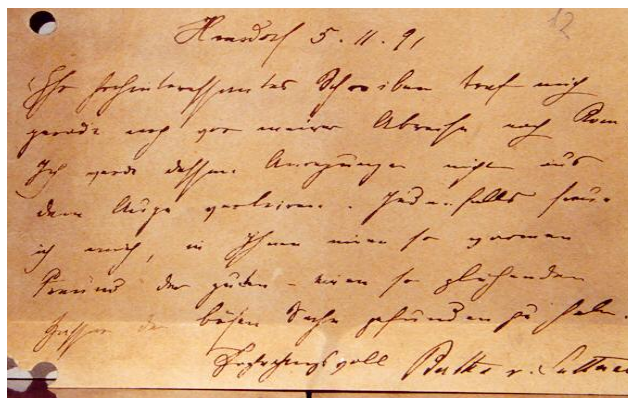 12
5. 11. 91
Ihr hochinteressantes Schreiben traf mich
gerade noch vor meiner Abreise nach Rom
Ich werde dessen Anregungen nicht aus
dem Auge verlieren. Jedenfalls freue
ich mich, in Ihnen einen so warmen
Freund der guten – einen so glühenden
Hasser der bösen Sache gefunden zu haben.
Hochachtungsvoll Bertha v. Suttner